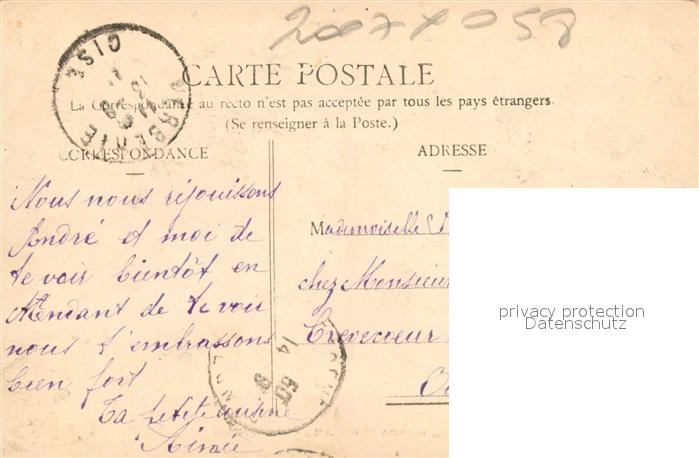 2007X058
CARTE POSTALE
La Correspondance au recto n'est pas acceptée par tous les pays étrangers.
(Se renseigner à la Poste.)
CORRESPONDANCE
ADRESSE
Nous nous réjouissons
André et moi de
te voir bientôt en
Attendant de te voir
nous t'embrassons
bien fort
Ta petite cousine
Aimée
Mademoiselle
chez Monsieur
Crevecoeur
privacy protection
Datenschutz